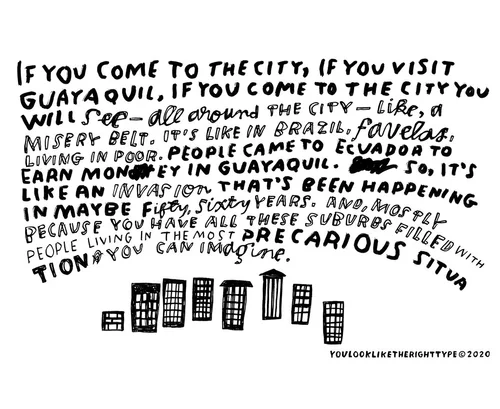 IF YOU COME TO THE CITY, IF YOU VISIT
GUAYAQUIL, IF YOU COME TO THE CITY YOU
WILL See – all around THE CITY – Like, a
MISERY BELT. IT'S LIKE IN BRAZIL, favelas,
LIVING IN POOR. PEOPLE CAME TO ECUADOR TO
EARN MONEY IN GUAYAQUIL. SO, IT'S
LIKE AN INVASION THAT'S BEEN HAPPENING
IN MAYBE Fifty, Sixty YEARS. AND, MOSTLY
BECAUSE YOU HAVE ALL THESE SUBURBS FILLED WITH
PEOPLE LIVING IN THE MOST PRECARIOUS SITUA
TION YOU CAN IMagine.
YOULOOKLIKETHERIGHTTYPE©2020